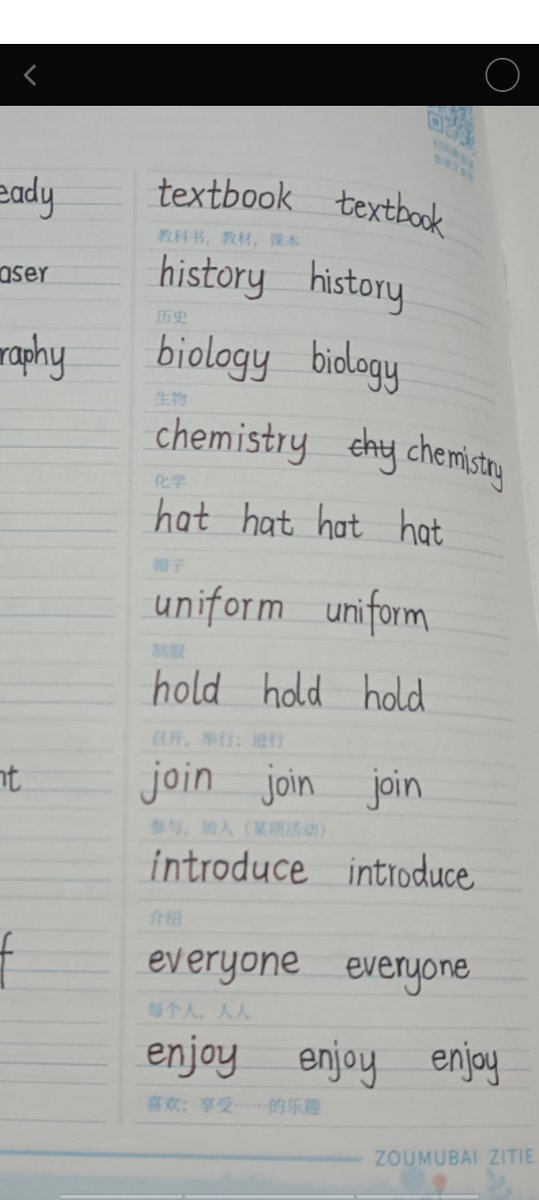 eady
textbook textbook
教科书，教材，课本
aser
history history
历史
raphy
biology biology
生物
chemistry chy chemistry
化学
hat hat hat hat
帽子
uniform uniform
制服
hold hold hold
召开，举行；进行
nt
join join join
参与，加入（某项活动）
introduce introduce
介绍
f
everyone everyone
每个人，人人
enjoy enjoy enjoy
喜欢；享受……的乐趣
ZOUMUBAI ZITIE